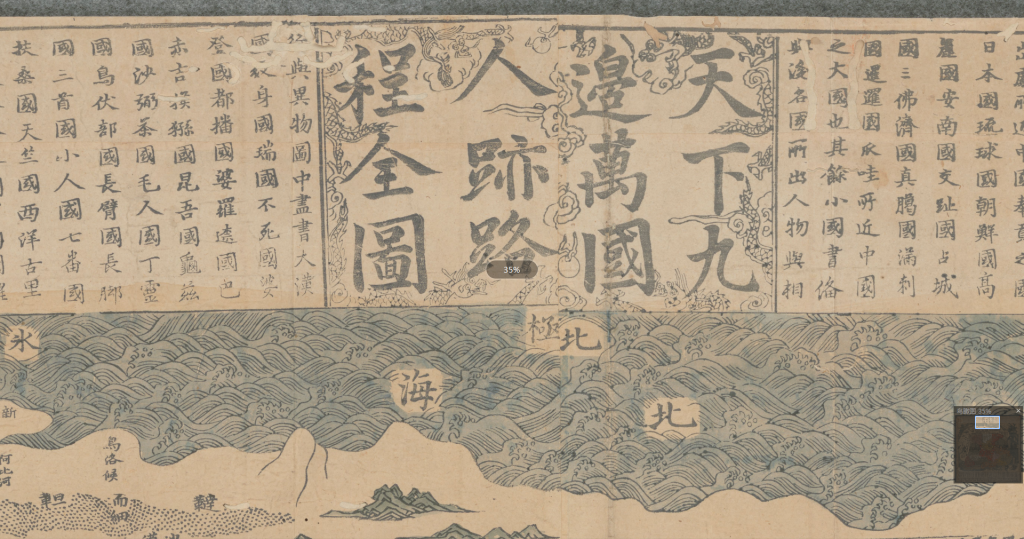 日本國琉球國朝鮮國高
麗國安南國交趾國占城
國三佛濟國真臘國滿剌
國暹羅國爪哇所近中國
之大國也其餘小國書俻
與海名國所出人物與相
天下九
邊萬國
人跡路
程全圖
與異物圖中盡書大漢
國紋身國瑞國不死國婆
登國都播國婆羅遠國也
赤吉猴猻國昆吾國龜茲
國沙弼茶國毛人國丁靈
國烏伏部國長臂國長脚
國三首國小人國七番國
扶桑國天竺國西洋古里
北極
北
海
氷
新
烏洛候
35%